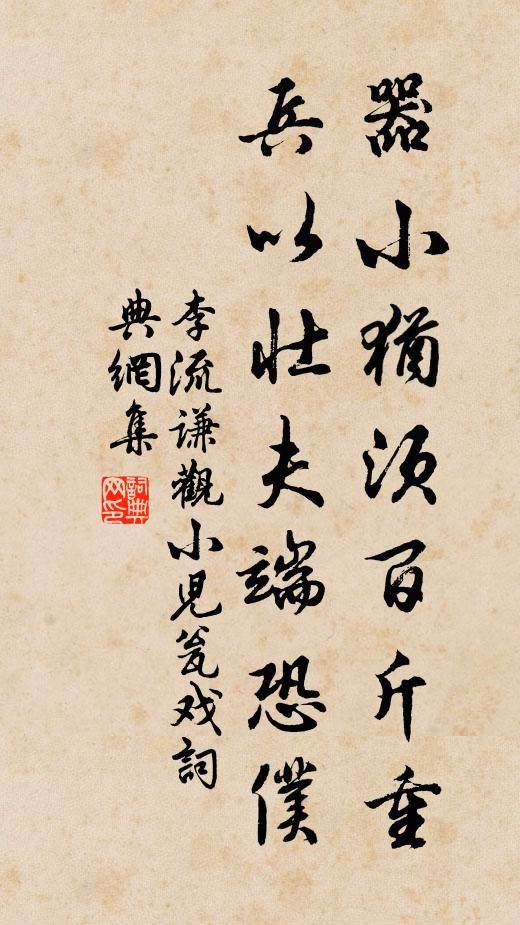 器小猶須百斤重
兵以壮夫端恐僕
李流謙觀小児瓮戏詞
典網集
詞典网印